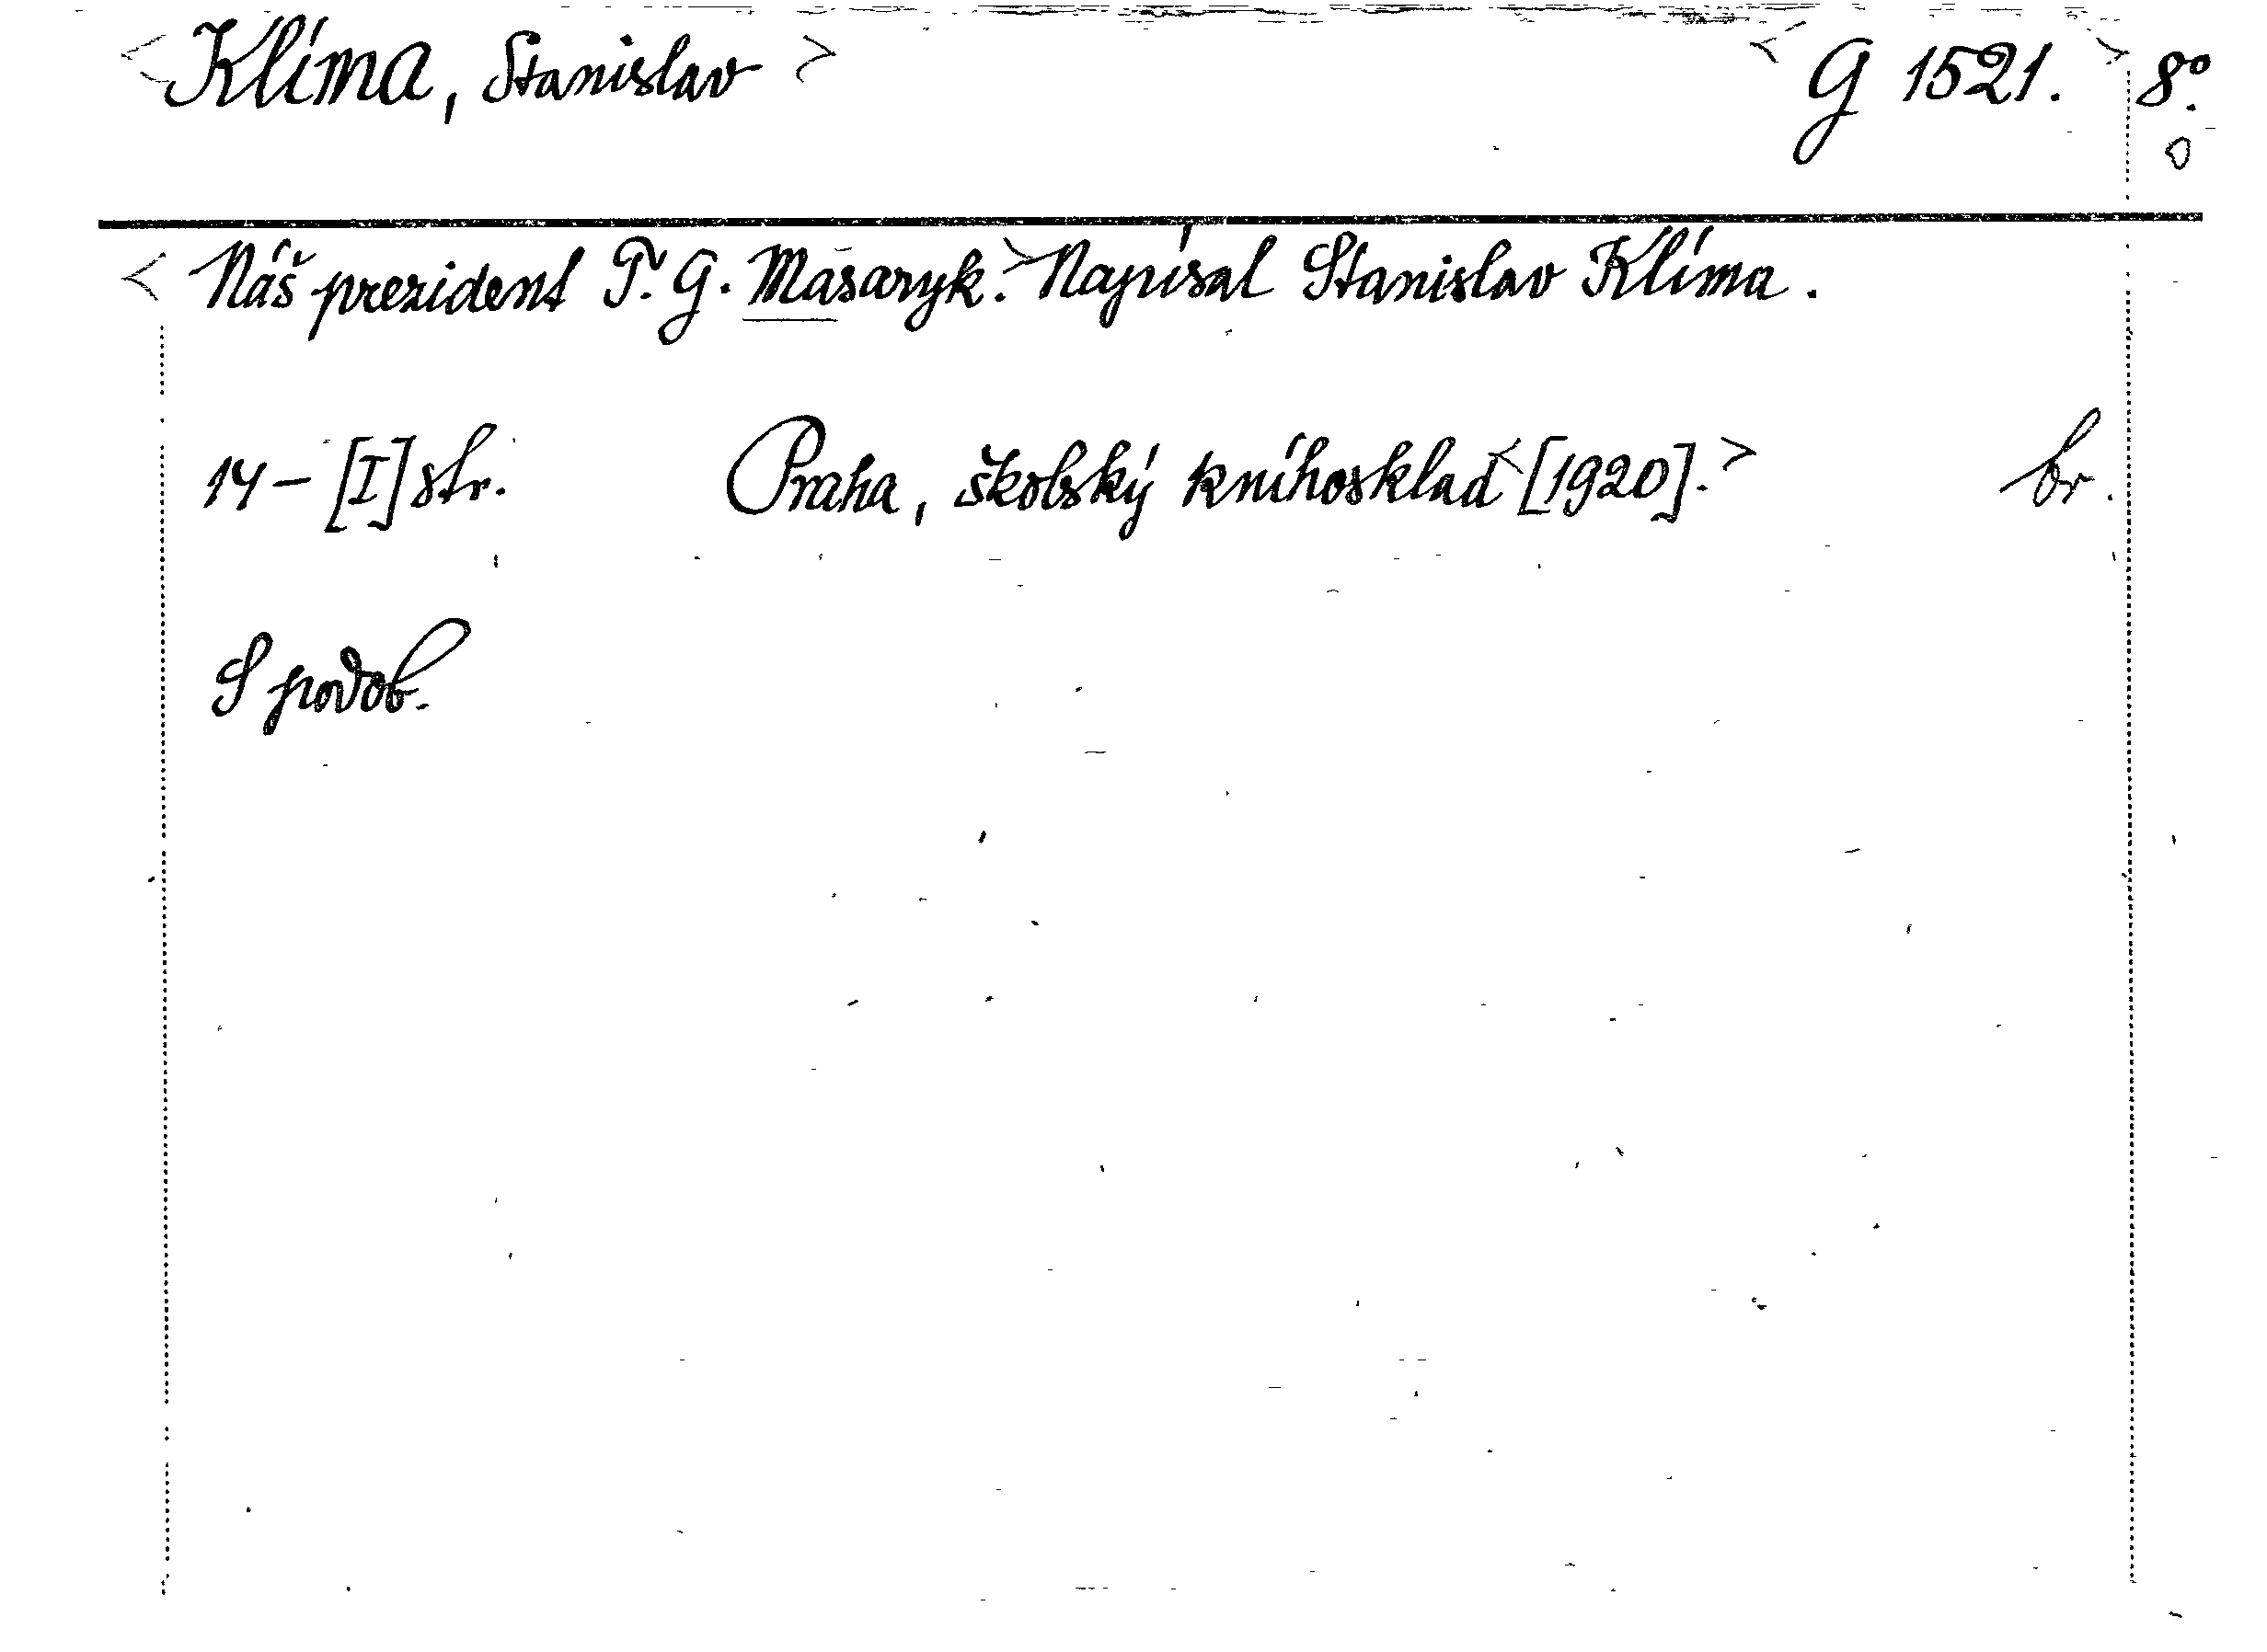 <Klíma, Stanislav> <G 1521.> 8°.
<Náš prezident T. G. Masaryk.> Napísal Stanislav Klíma.
14 – [I] str. Praha, školský kníhosklad <[1920].> br.
S podob.